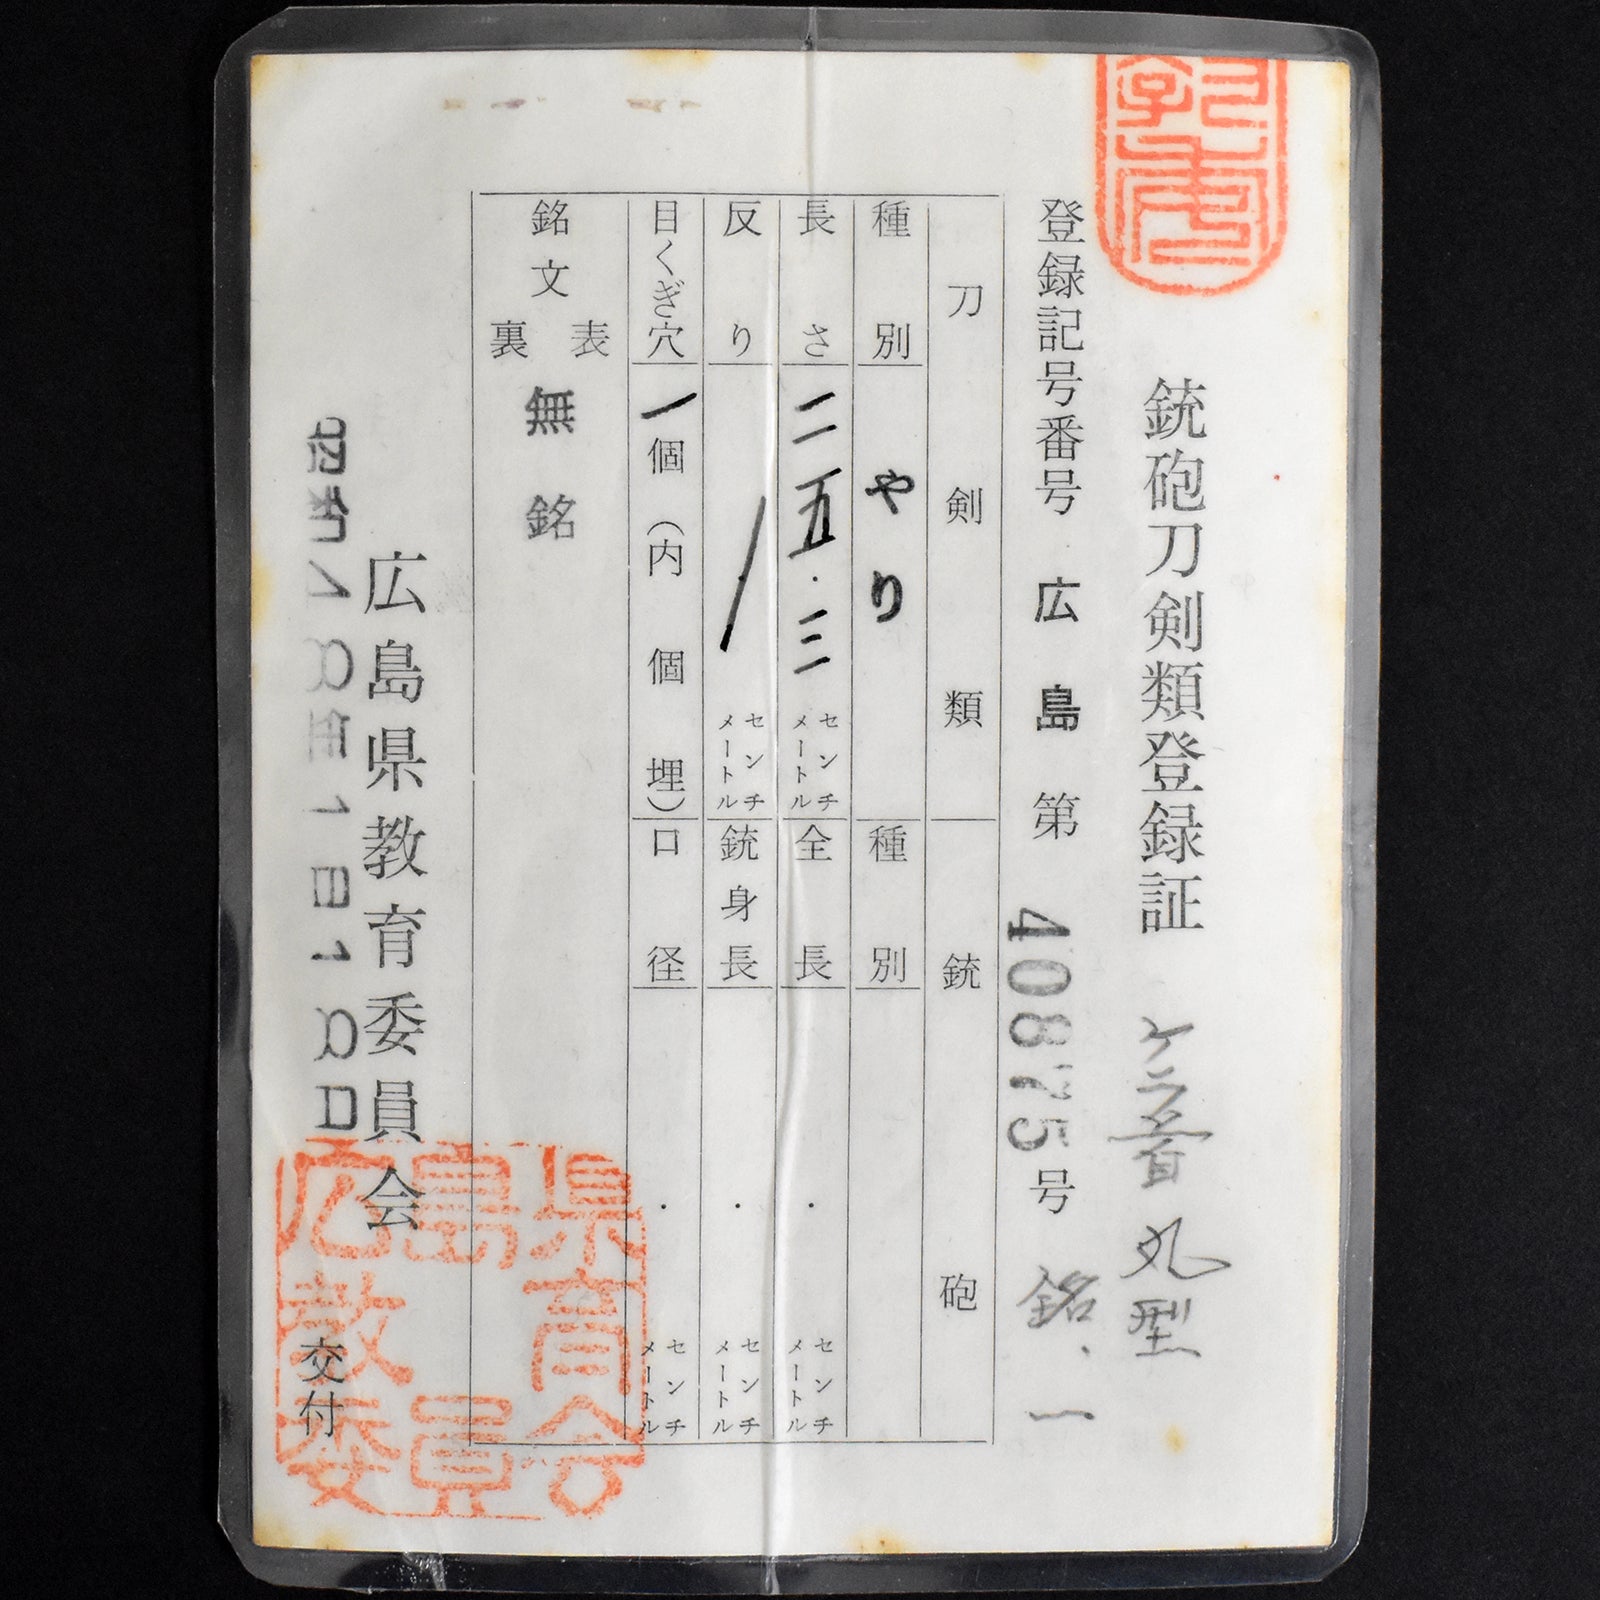 銃砲刀剣類登録証
丸型
登録記号番号 広島 第 40875 号
銘・一
刀剣類
銃砲
種別 やり
種別
長さ 二五・三 センチメートル
全長 ・ センチメートル
反り / センチメートル
銃身長 ・ センチメートル
目くぎ穴 一個(内 個埋)
口径 ・ センチメートル
銘文 表 裏 無銘
広島県教育委員会
1月1
交付
広島県教育委員会